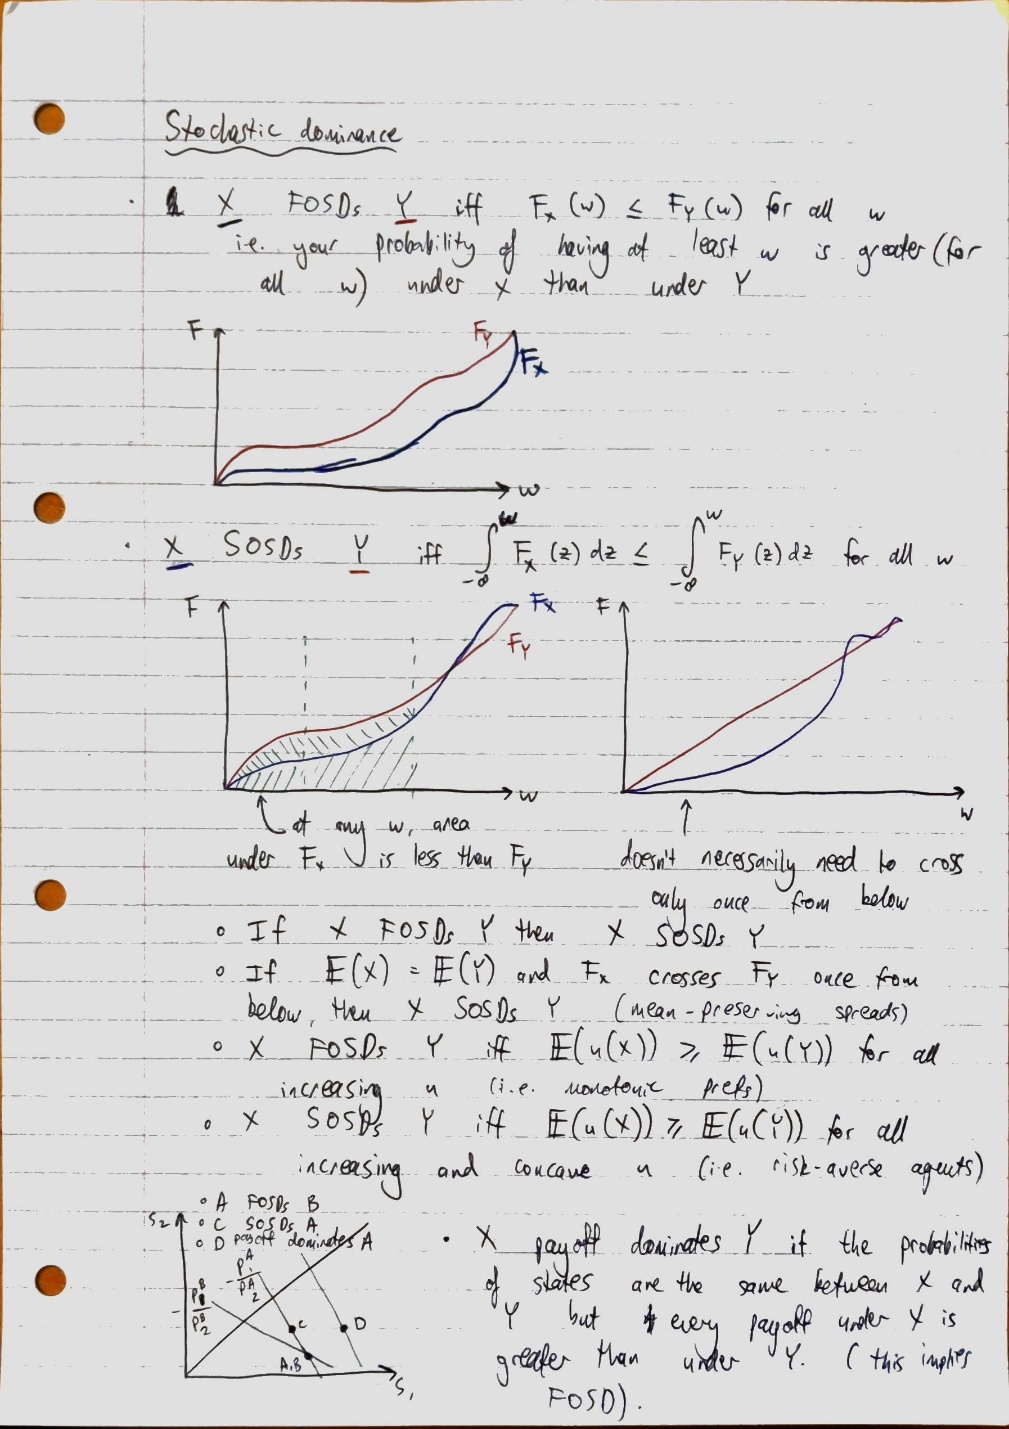 Stochastic dominance
· X FOSDs Y iff Fx (w) ≤ FY (w) for all w
i.e. your probability of having at least w is greater (for
all w) under X than under Y
F FY
Fx
w
· X SOSDs Y iff ∫_{-∞}^{w} Fx (z) dz ≤ ∫_{-∞}^{w} FY (z) dz for all w
F Fx F
FY
w w
at any w, area
under Fx is less than FY
doesn't necessarily need to cross
only once from below
∘ If X FOSDs Y then X SOSDs Y
∘ If E(X) = E(Y) and Fx crosses FY once from
below, then X SOSDs Y (mean-preserving spreads)
∘ X FOSDs Y iff E(u(X)) ≥ E(u(Y)) for all
increasing u (i.e. monotonic prefs)
∘ X SOSDs Y iff E(u(X)) ≥ E(u(Y)) for all
increasing and concave u (i.e. risk-averse agents)
∘ A FOSDs B
∘ C SOSDs A
∘ D payoff dominates A
S2
-P1^A/P2^A
-P1^B/P2^B
C D
A,B
S1
· X payoff dominates Y if the probabilities
of states are the same between X and
Y but every payoff under X is
greater than under Y. (this implies
FOSD).